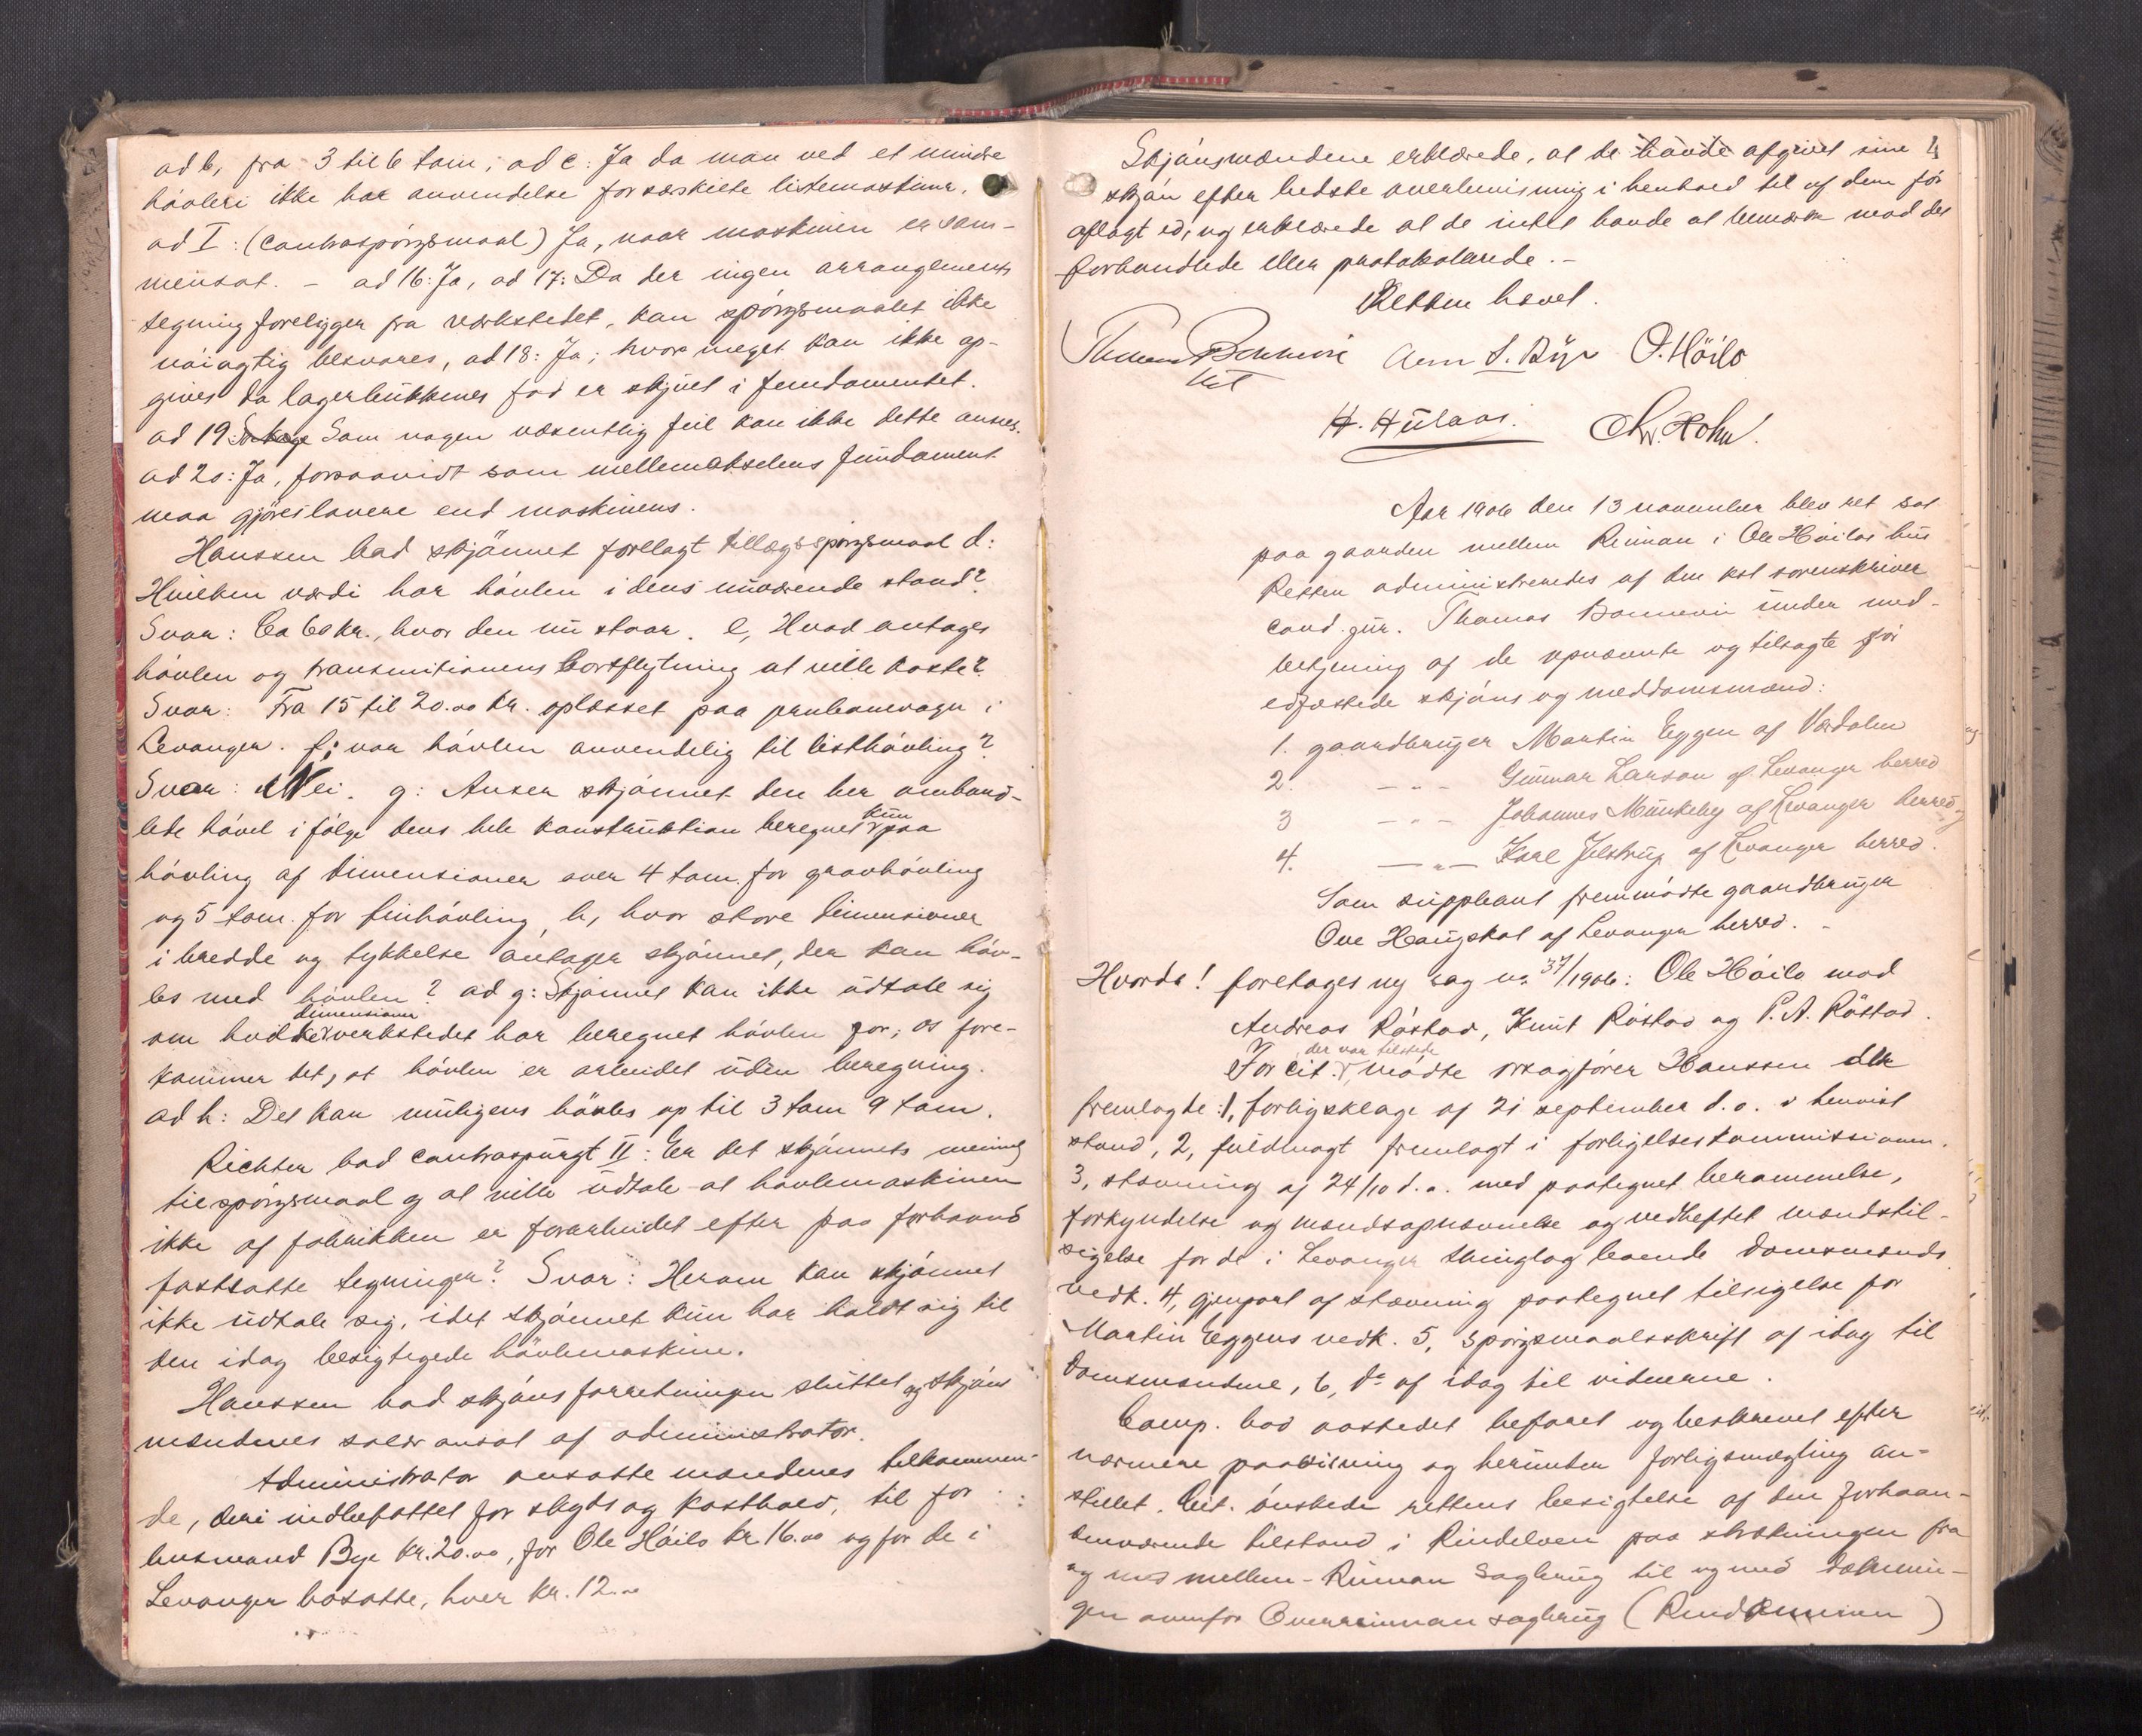 ad b, fra 3 til 6 tom; ad c: Ja da man ved et mindre
høvleri ikke har anvendelse for særskilte listemaskiner.
ad I: (contraspörgsmaal) Ja, naar maskinen er sam-
mensat. - ad 16: Ja, ad 17: Da der ingen arrangements
tegning foreligger fra værkstedet, kan spörgsmaalet ikke
nöiagtig besvares, ad 18: Ja; hvor meget kan ikke op-
gives da lagerbukkenes fod er skjult i fundamentet.
ad 19: Som nogen væsentlig feil kan ikke dette ansees.
ad 20: Ja, forsaavidt som mellemakselens fundament
maa gjöres lavere end maskinens.
Hanssen bad skjönnet forelagt tillægsspörgsmaal d:
Hvilken værdi har hövlen i dens nuværende stand?
Svar: Ca 60 kr., hvor den nu staar. e, Hvad antages
hövlen og transmitionens bortflytning at ville koste?
Svar: Fra 15 til 20.00 kr. oplæsset paa jernbanevogn i
Levanger. f; var hövlen anvendelig til listhövling?
Svar: Nei. g: Anser skjönnet den her omhand-
lede hövel i fölge dens hele konstruktion beregnet kun paa
hövling af dimensioner over 4 tom. for grovhövling
og 5 tom. for finhövling, h, hvor store dimensioner
i bredde og tykkelse antager skjönnet, der kan höv-
les med hövlen? ad g: Skjönnet kan ikke udtale sig
om hvilke dimensioner verkstedet har beregnet hövlen for; os fore-
kommer det, at hövlen er arbeidet uden beregning.
ad h: Det kan muligens hövles op til 3 tom 9 tom.
Richter bad contraspurgt II: Er det skjönnets mening
til spörgsmaal g at ville udtale at hövlemaskinen
ikke af fabrikken er forarbeidet efter paa forhaand
fastsatte tegninger? Svar: Herom kan skjönnet
ikke udtale sig, idet skjönnet kun har holdt sig til
den idag besigtigede hövlemaskine.
Hanssen bad skjönsforretningen sluttet og skjöns
mændenes salær ansat af administrator.
Administrator ansatte mændenes tilkommen-
de, deri indbefattet for skyds og kosthold, til for
husmand Bye kr. 20.00, for Ole Höilo kr 16.00 og for de i
Levanger bosatte, hver kr. 12.00
4
Skjönsmændene erklærede, at de havde afgivet sine
skjön efter bedste overbevisning i henhold til af dem för
aflagt ed, og erklærede at de intet havde at bemærke mod det
forhandlede eller protokollerede. -
Retten hævet.
Thomas Bonnevie
kst
S. Bye O. Höilo
H. Hulaas. Chr. Hohn.
Aar 1906 den 13 november blev ret sat
paa gaarden mellem Rinnan i Ole Höilos hus
Retten administreredes af den kst sorenskriver
cand. jur. Thomas Bonnevie under med-
betjening af de opnævnte og tilsagte för
edfæstede skjöns og meddomsmænd:
1. gaardbruger Martin Eggen af Værdalen
2. - " - Gunnar Larsen af Levanger herred
3 - " - Johannes Munkeby af Levanger herred og
4. - " - Karl Jelstrup af Levanger herred.
Som suppleant fremmödte gaardbruger
Ove Haugskot af Levanger herred. -
Hvorda! foretages ny sag no 37/1906: Ole Höilo mod
Andreas Röstad, Knut Röstad og P. A. Röstad.
For cit. der var tilstede, mödte orsagförer Hanssen der
fremlagde: 1, forligsklage af 21 september d. a. i henvist
stand, 2, fuldmagt fremlagt i forligelseskommissionen.
3, stævning af 24/10 d. a. med paategnet berammelse,
forkyndelse og mandsopnævnelse og vedheftet mandstil-
sigelse for de i Levanger thinglag boende domsmænds
vedk. 4, gjenpart af stævning paategnet tilsigelse for
Martin Eggens vedk. 5, spörgsmaalsskrift af idag til
domsmændene, 6, do af idag til vidnerne.
Comp. bad aastedet befaret og beskrevet efter
nærmere paavisning og herunder forligsmægling an-
stillet. Cit. önskede rettens besigtelse af den forhaan-
denværende tilstand i Rindelven paa strækningen fra
og med mellem-Rinnan sagbrug til og med dæmnin-
gen ovenfor Overrinnan sagbrug ( )